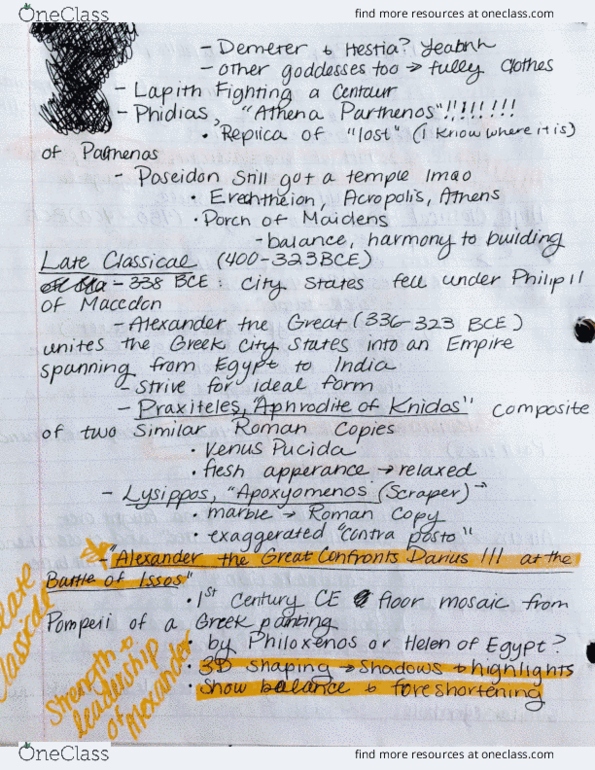 OneClass
find more resources at oneclass.com
- Demeter & Hestia? Yeahhh
- other goddesses too → fully clothes
- Lapith Fighting a Centaur
- Phidias, "Athena Parthenos"!!!!!!!
• Replica of "lost" (I know where it is)
of Pathenos
- Poseidon Still got a temple lmao
• Erechtheion, Acropolis, Athens
• Porch of Maidens
- balance, harmony to building
Late Classical (400-323BCE)
- 338 BCE: City States fell under Philip II
of Macedon
- Alexander the Great (336-323 BCE)
unites the Greek city States into an Empire
spanning from Egypt to India
- strive for ideal form
- Praxiteles, "Aphrodite of Knidos" composite
of two Similar Roman Copies
• Venus Pucida
• flesh apperance → relaxed
- Lysippos, "Apoxyomenos (Scraper)"
• marble → Roman Copy
• exaggerated "contra posto"
- "Alexander the Great Confronts Darius III at the
Battle of Issos"
• 1st Century CE floor mosaic from
Pompeii of a Greek painting
by Philoxenos or Helen of Egypt?
• 3D Shaping → Shadows & highlights
• Show balance & foreshortening
Late
Classical
Strength &
leadership
of Alexander
OneClass
find more resources at oneclass.com